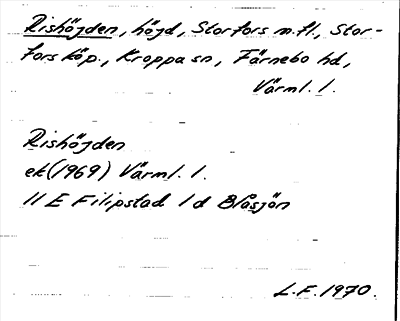 Rishöjden, höjd, Storfors m.fl., Stor-
fors köp., Kroppa sn, Färnebo hd,
Värml. l.
Rishöjden
ek (1969) Värml. l.
11 E Filipstad 1 d Blåsjön
L.F. 1970.